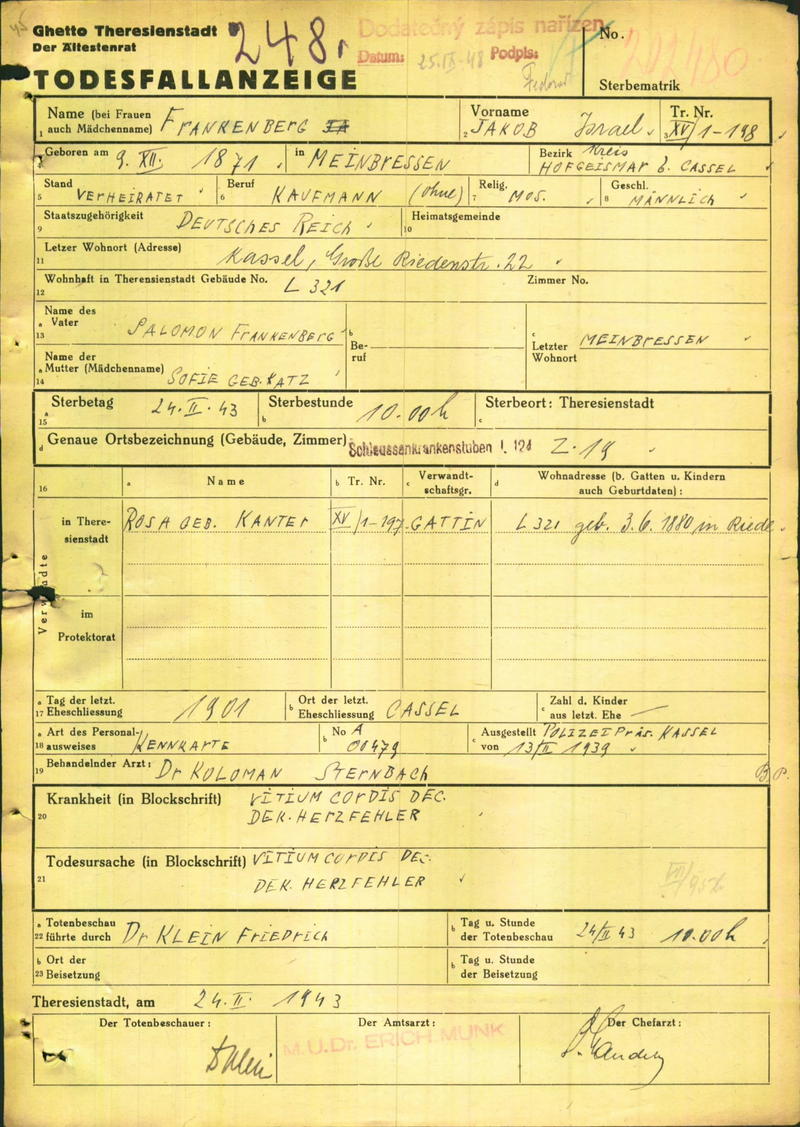 Ghetto Theresienstadt
Der Ältestenrat
248.
Dodatečný zápis nařízen
Datum: 25.IX.48 Podpis:
No.
202480
TODESFALLANZEIGE
Sterbematrik
Name (bei Frauen auch Mädchenname) FRANKENBERG
1
Vorname JAKOB Israel
2
Tr. Nr. XV/1-198
3
Geboren am 9. XII. 1871 in MEINBRESSEN
Bezirk Kreis HOFGEISMAR b. CASSEL
Stand VERHEIRATET
5
Beruf KAUFMANN (ohne)
6
Relig. MOS.
7
Geschl. MÄNNLICH
8
Staatszugehörigkeit DEUTSCHES REICH
9
Heimatsgemeinde
10
Letzer Wohnort (Adresse) Kassel, Große Riedenstr. 22
11
Wohnhaft in Therensienstadt Gebäude No. L 321 Zimmer No.
12
Name des Vater SALOMON FRANKENBERG
a 13
b Beruf
c Letzter Wohnort MEINBRESSEN
Name der Mutter (Mädchenname) SOFIE GEB. KATZ
a 14
Sterbetag 24. II. 43
a 15
Sterbestunde 10.00h
b
Sterbeort: Theresienstadt
c
d Genaue Ortsbezeichnung (Gebäude, Zimmer) Schleussenkrankenstuben L 124 Z. 19
16
a Name
b Tr. Nr.
c Verwandtschaftsgr.
d Wohnadresse (b. Gatten u. Kindern auch Geburtdaten):
Verwandte
in Theresienstadt
ROSA GEB. KANTER XV/1-197 GATTIN L 321 geb. 3.6.1880 in Riede
im Protektorat
a 17 Tag der letzt. Eheschliessung 1901
b Ort der letzt. Eheschliessung CASSEL
c Zahl d. Kinder aus letzt. Ehe —
a 18 Art des Personalausweises KENNKARTE
b No A 00479
c Ausgestellt von POLIZEIPRÄS. KASSEL 13/II 1939
19 Behandelnder Arzt: Dr KOLOMAN STERNBACH
B.P.
Krankheit (in Blockschrift) VITIUM CORDIS DEC.
20 DEK. HERZFEHLER
Todesursache (in Blockschrift) VITIUM CORDIS DEC.
21 DEK. HERZFEHLER
a 22 Totenbeschau führte durch Dr KLEIN FRIEDRICH
b Tag u. Stunde der Totenbeschau 24/II 43 10.00h
b 23 Ort der Beisetzung
b Tag u. Stunde der Beisetzung
Theresienstadt, am 24. II. 1943
Der Totenbeschauer:
Der Amtsarzt:
Der Chefarzt:
M.U.Dr. ERICH MUNK
DKlein